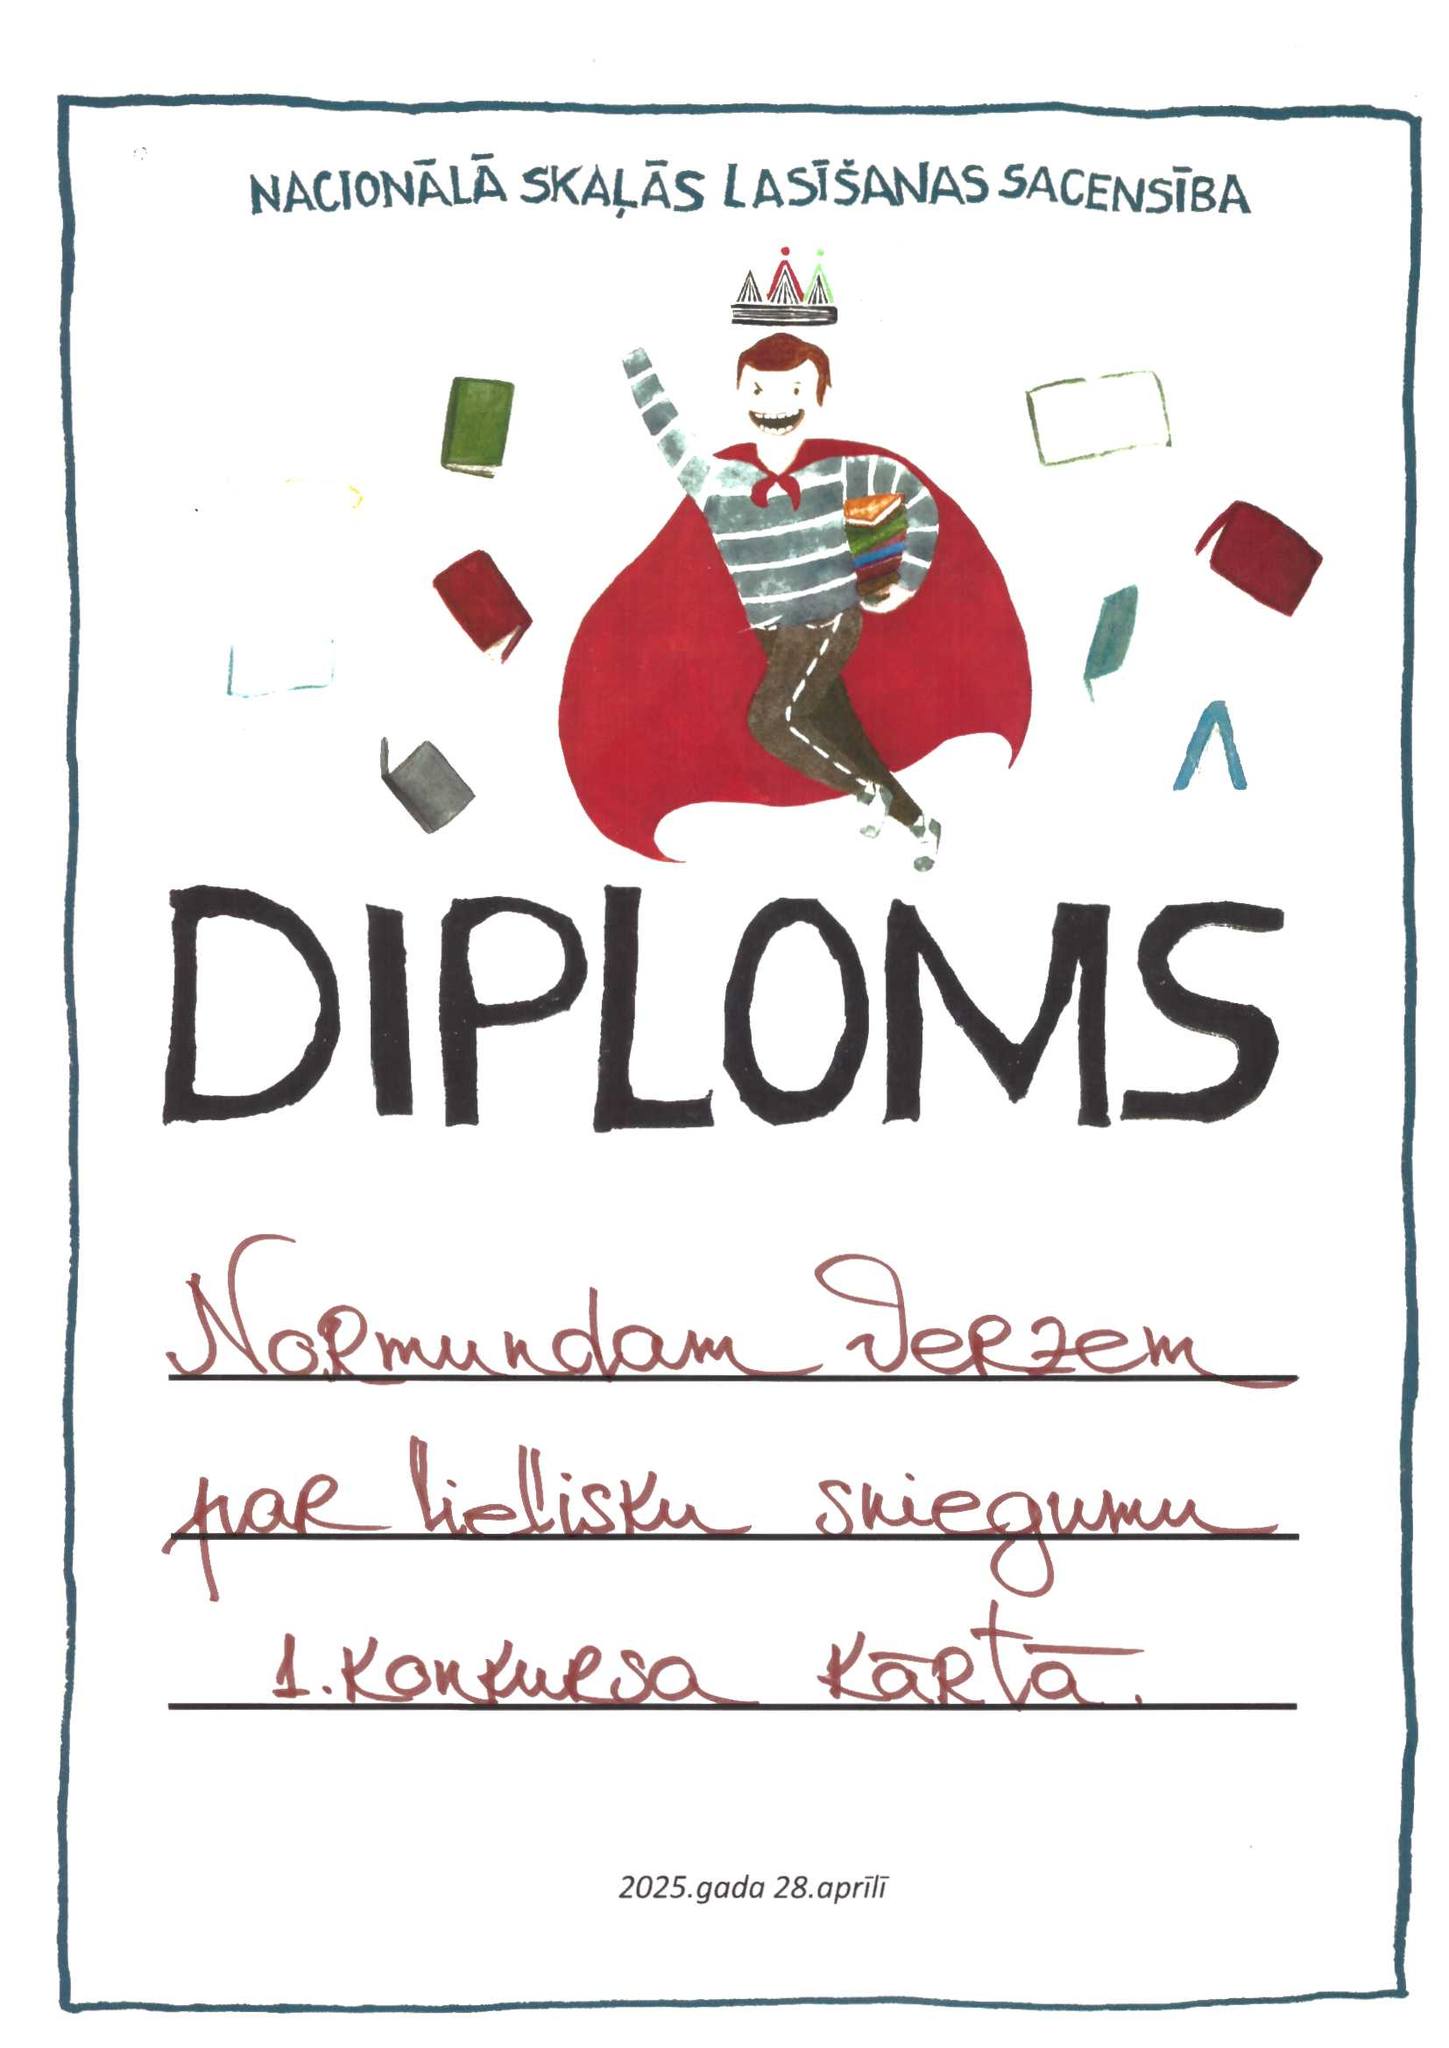 NACIONĀLĀ SKAĻĀS LASĪŠANAS SACENSĪBA
DIPLOMS
Normundam Verzem
par lielisku sniegumu
1. konkursa kārtā.
2025.gada 28.aprīlī